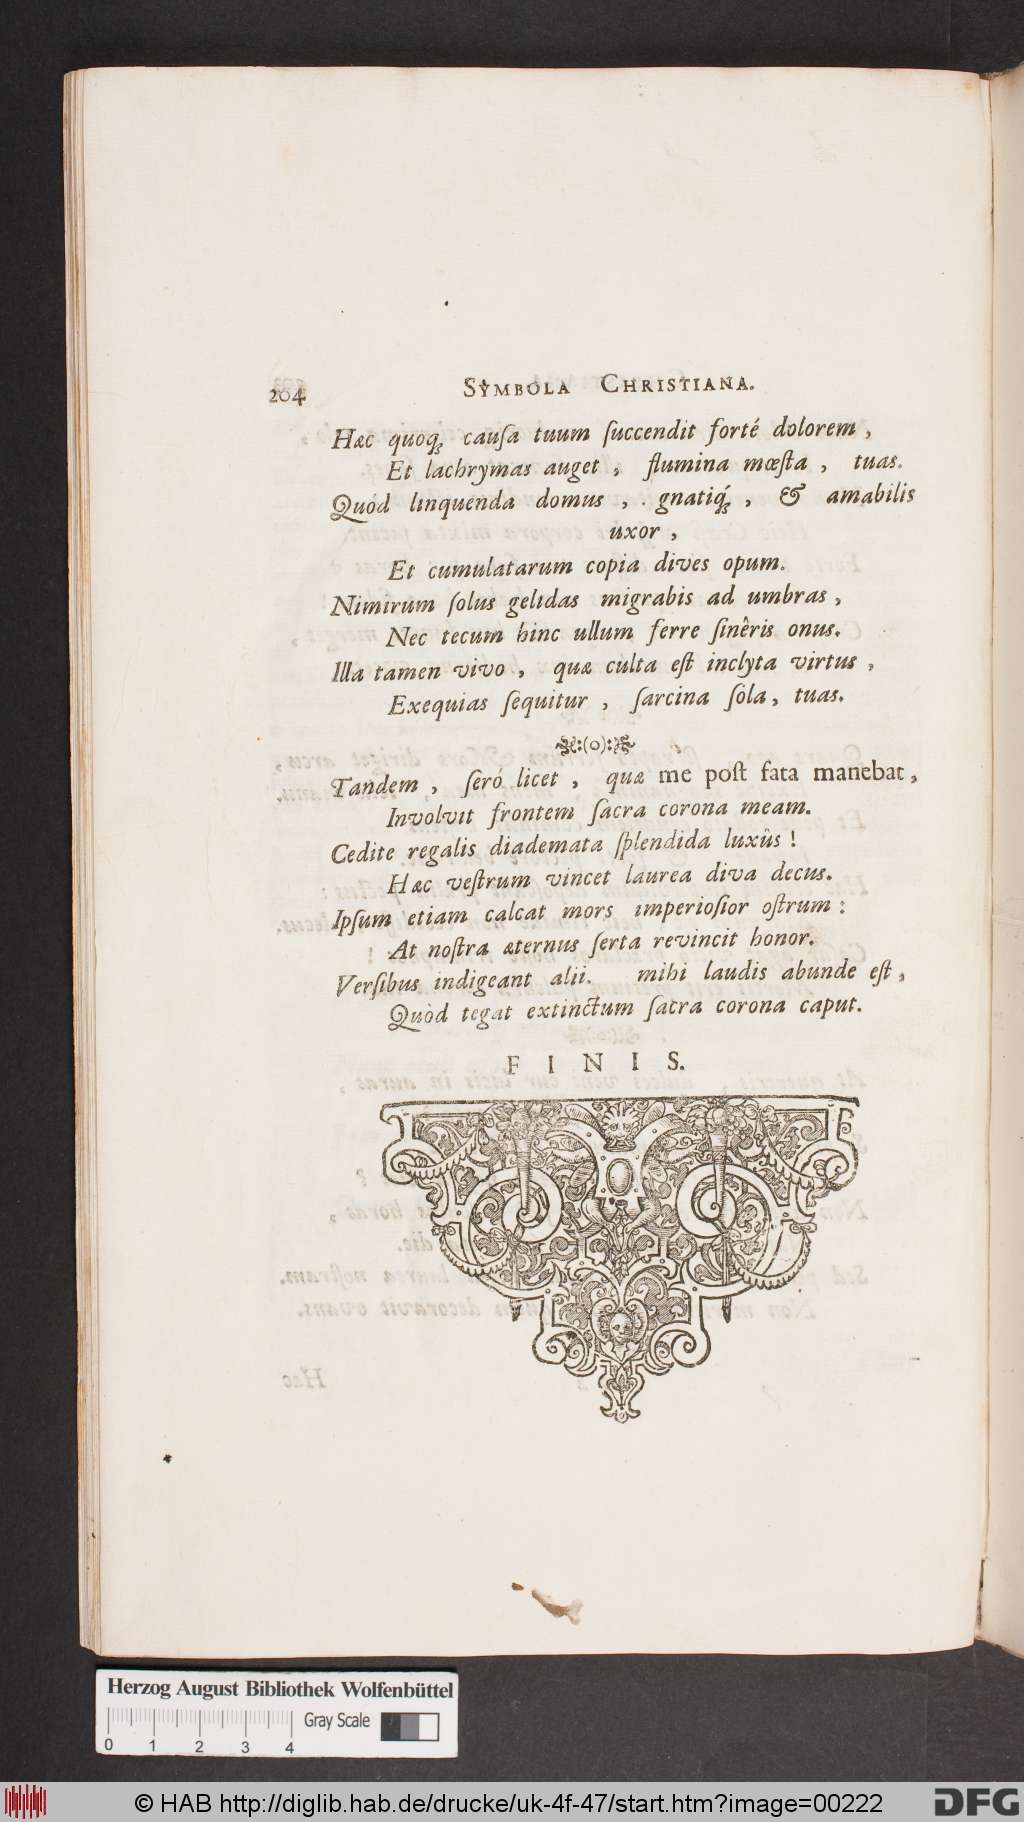 204 SYMBOLA CHRISTIANA.
Hæc quoq́; cauſa tuum ſuccendit forté dolorem,
Et lachrymas auget, flumina mœſta, tuas.
Quód linquenda domus, gnatiq́;, & amabilis
uxor,
Et cumulatarum copia dives opum.
Nimirum ſolus gelidas migrabis ad umbras,
Nec tecum hinc ullum ferre ſinêris onus.
Illa tamen vivo, quæ cùlta eſt inclyta virtus,
Exequias ſequitur, ſarcina ſóla, tuas.
:(o):
Tandem, ſeró licet, quæ me poſt fata manebat,
Involvit frontem ſacra corona meam.
Cedite regalis diademata ſplendida luxûs!
Hæc veſtrum vincet laurea diva decus.
Ipſum etiam calcat mors imperioſior oſtrum:
At noſtra æternus ſerta revincit honor.
Verſibus indigeant alii. mihi laudis abunde eſt,
Quòd tegat extinctum ſacra corona caput.
FINIS.
Herzog August Bibliothek Wolfenbüttel
Gray Scale
0 1 2 3 4
© HAB http://diglib.hab.de/drucke/uk-4f-47/start.htm?image=00222
DFG